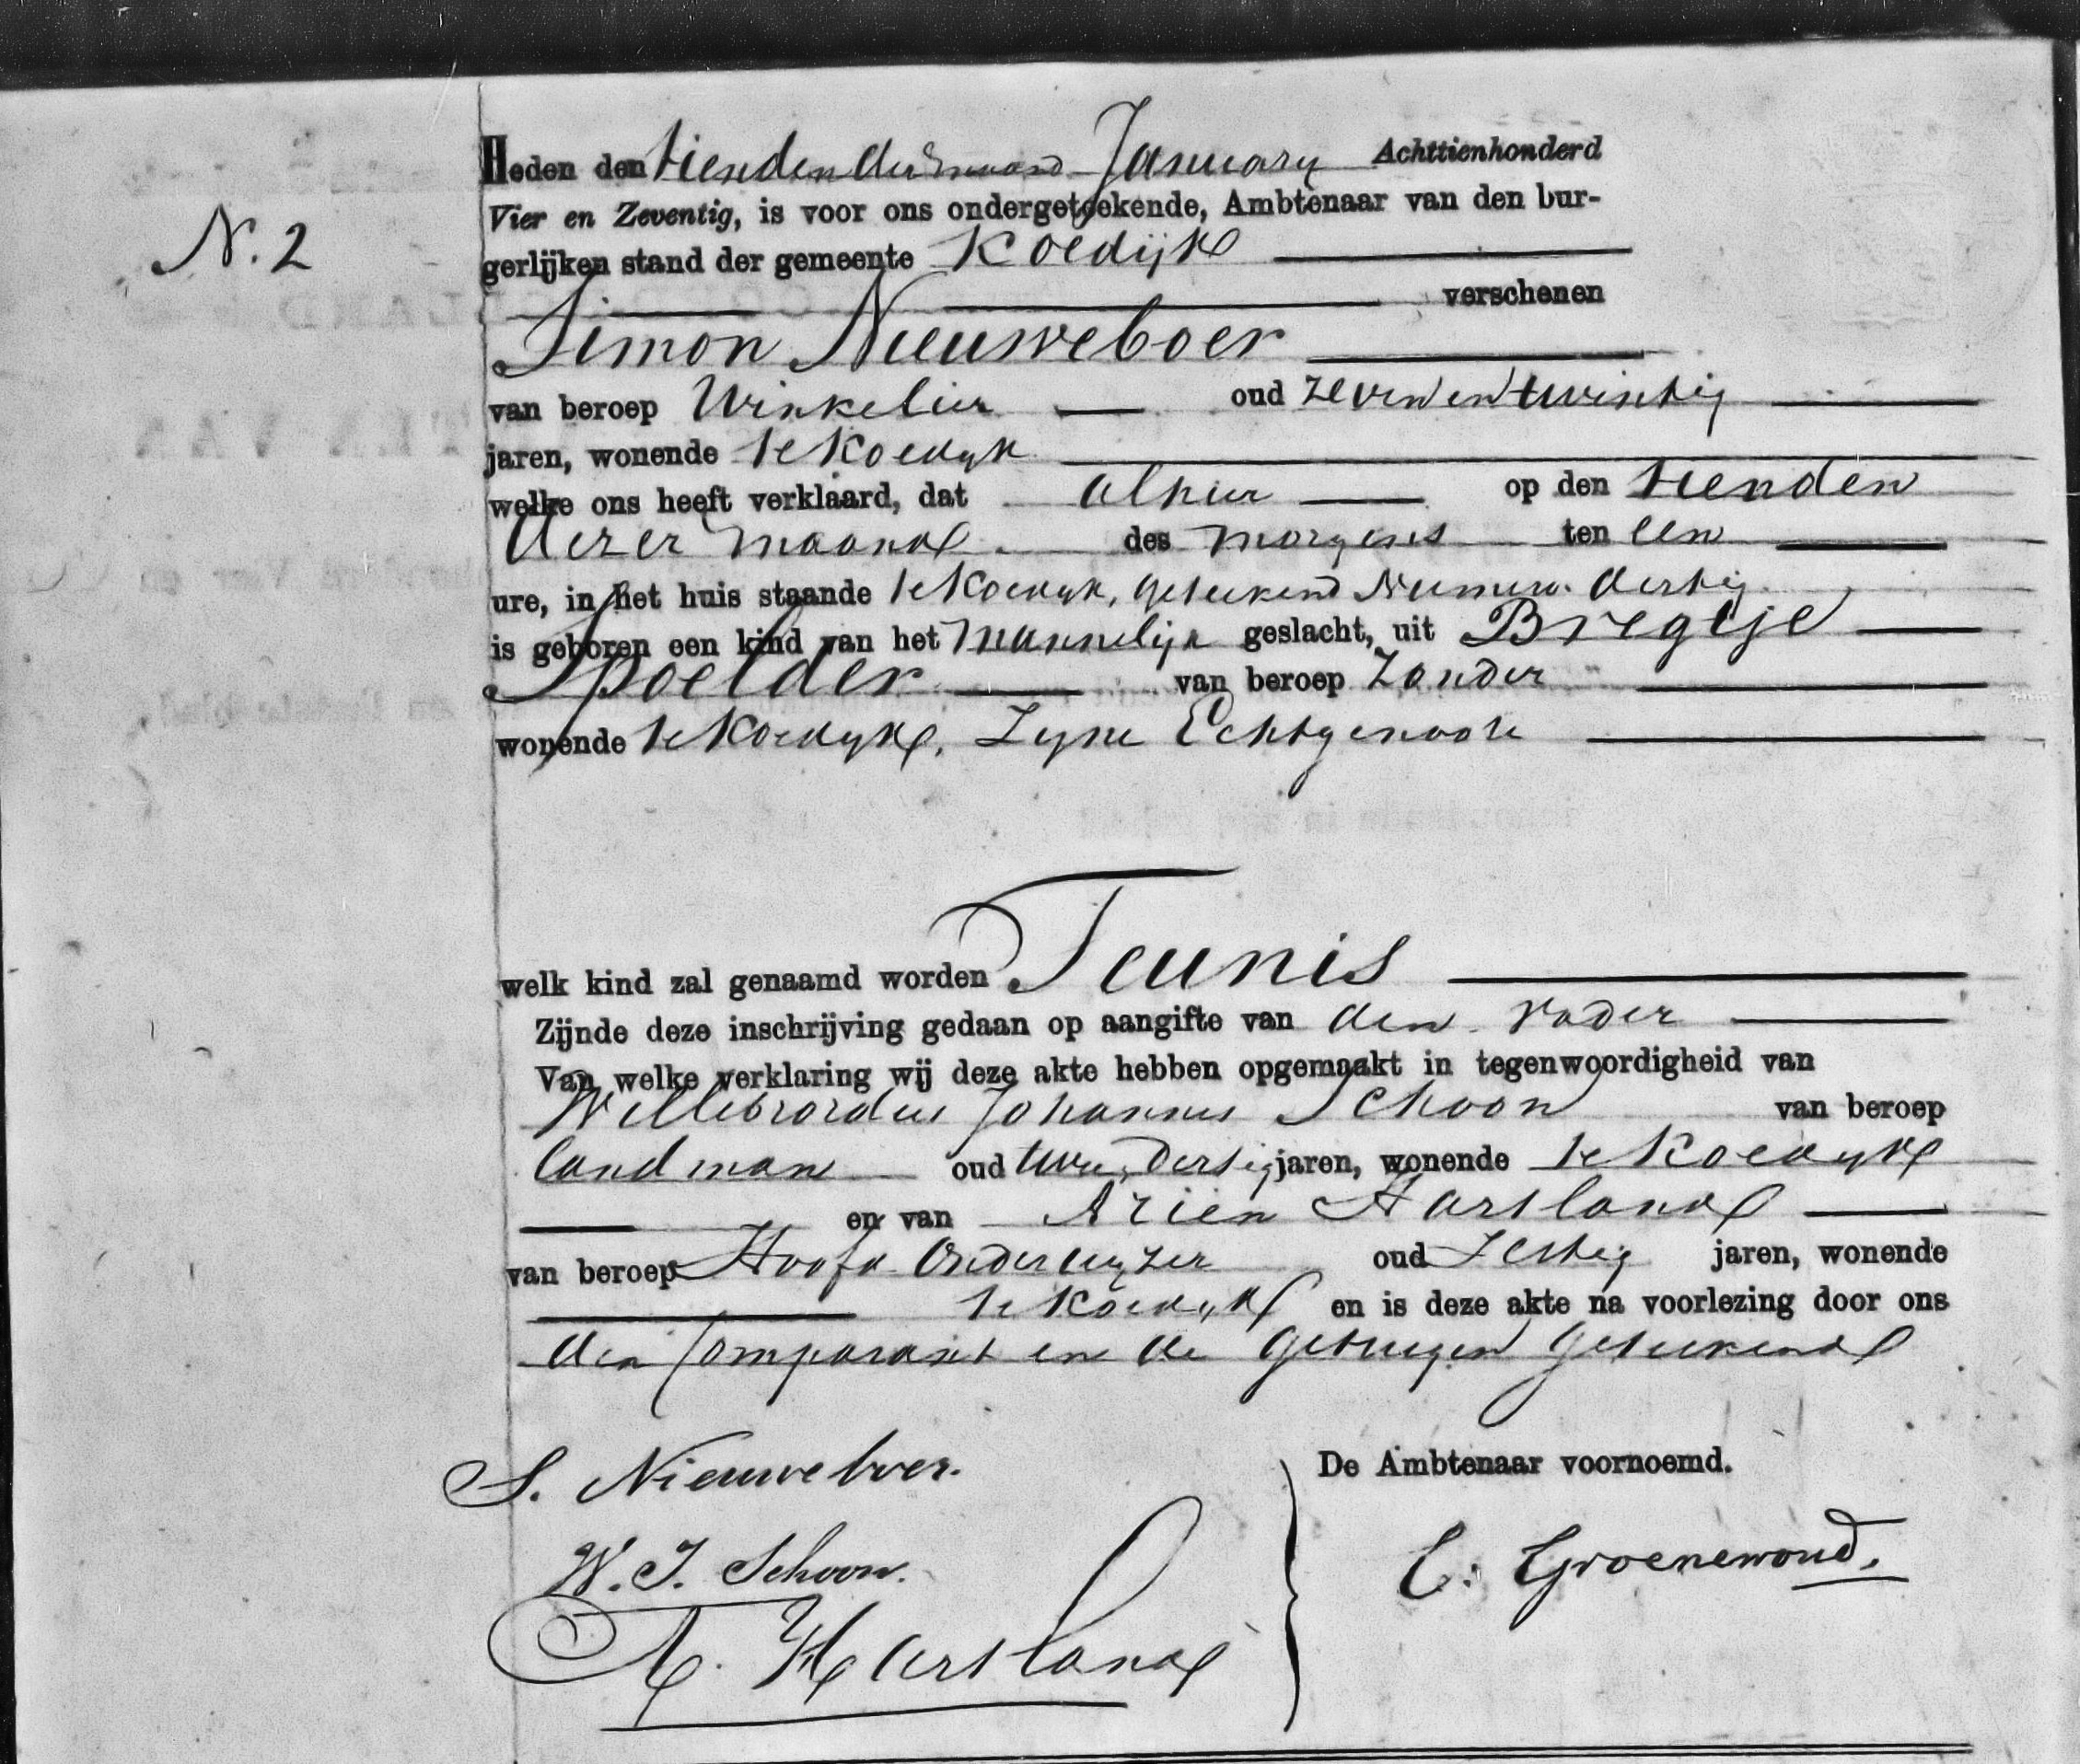 N. 2
Heden den tienden der maand January Achttienhonderd
Vier en Zeventig, is voor ons ondergeteekende, Ambtenaar van den bur-
gerlijken stand der gemeente Koedijk
verschenen
Simon Nieuweboer
van beroep Winkelier oud zevenentwintig
jaren, wonende te Koedyk
welke ons heeft verklaard, dat alhier op den tienden
dezer maand des morgens ten een
ure, in het huis staande te Koedyk, geteekend Numero dertig
is geboren een kind van het Mannelijk geslacht, uit Bregtje
Spoelder van beroep Zonder
wonende te Koedyk, Zyne Echtgenoote
welk kind zal genaamd worden Teunis
Zijnde deze inschrijving gedaan op aangifte van den Vader
Van welke verklaring wij deze akte hebben opgemaakt in tegenwoordigheid van
Willebrordus Johannes Schoon van beroep
landman oud twee dertig jaren, wonende te Koedyk
en van Arien Hartland
van beroep Hoofd Onderwyzer oud Zestig jaren, wonende
te Koedyk en is deze akte na voorlezing door ons
den Comparant en de getuigen geteekend
S. Nieuweboer.
De Ambtenaar voornoemd.
W. J. Schoon.
C. Groenewoud.
A. Hartland